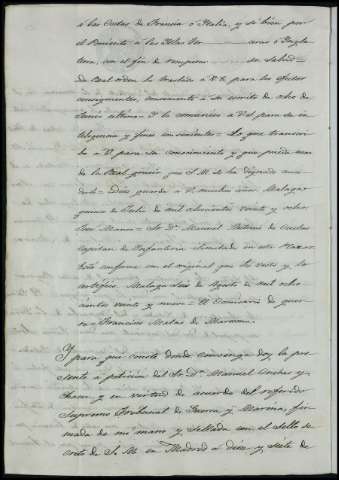 á las Costas de Francia ó Italia, y si bien por
el Poniente á las Islas Ter ceras ó Ingla
terra, con el fin de reponer su salud
De Real orden lo traslado á V.E. para los efectos
consiguientes, consecuente á su escrito de ocho de
Junio último = Y lo comunico á V.S. para su in
teligencia y fines consiguientes = Lo que transcri
bo á V. para su conocimiento y que pueda usar
de la Real gracia que S. M. se ha dignado con
cederle = Dios guarde á V. muchos años. Malaga
quince de Julio de mil ochocientos veinte y ocho
José Manso = Sr. Dn. Manuel
Capitan de Infanteria ilimitado en esta Plaza =
Está conforme con el original que he visto y lo
certifico. Malaga seis de Agosto de mil ocho
cientos veinte y nueve = El Comisario de guer
ra = Francisco Matias de
Y para que conste donde convenga doy la pre
sente á peticion del Sr. Dn. Manuel
y en virtud de acuerdo del referido
Supremo Tribunal de Guerra y Marina, fir
mada de mi mano y sellada con el sello se
creto de S. M. en Madrid á diez y siete de